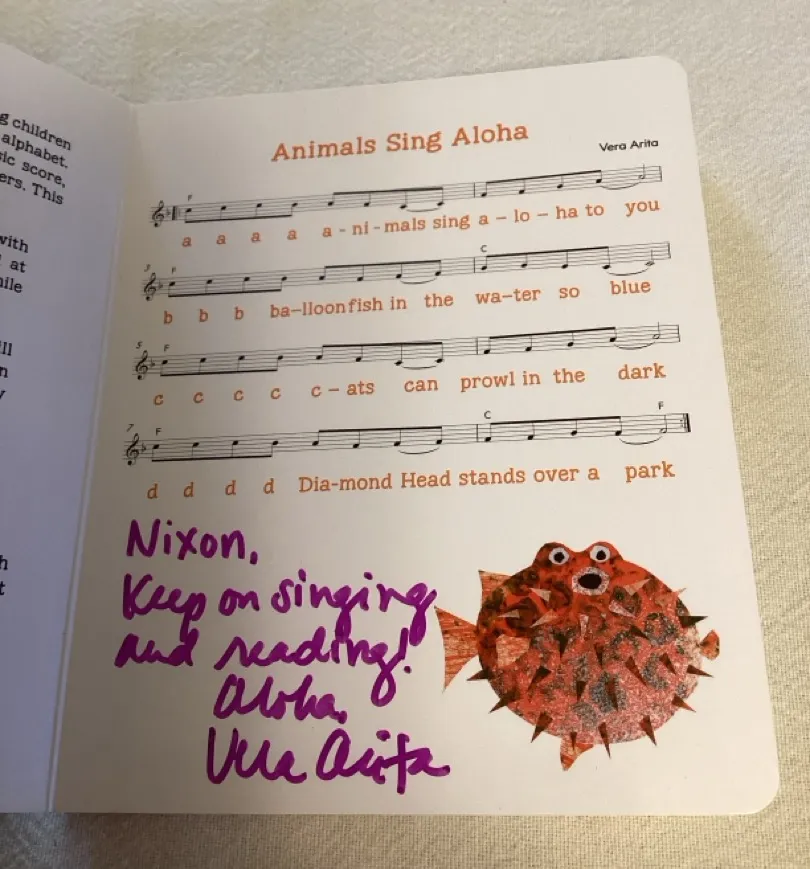 g children
alphabet.
sic score,
ers. This
with
at
ile
ill
n
y
h
t
Animals Sing Aloha
Vera Arita
F
a a a a a - ni - mals sing a – lo – ha to you
3
F C
b b b ba–lloonfish in the wa–ter so blue
5
F
c c c c c – ats can prowl in the dark
7
F C F
d d d d Dia-mond Head stands over a park
Nixon,
Keep on singing
and reading!
Aloha,
Vera Arita